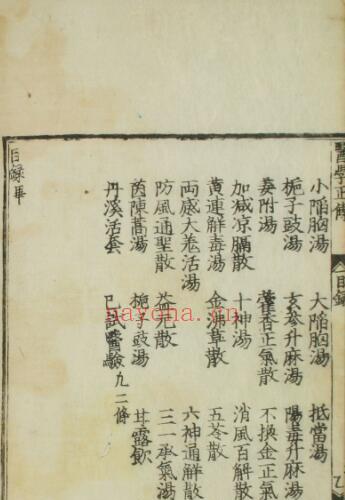 醫學正傳 目錄
小陷胸湯 大陷胸湯 抵當湯
梔子豉湯 玄參升麻湯 陽毒升麻湯
姜附湯 藿香正氣散 不換金正氣散
加减凉膈散 十神湯 消風百解散
黄連解毒湯 金沸草散 五苓散
両感大羗活湯 六神通解散
防風通聖散 益元散 三一承氣湯
茵陳蒿湯 梔子豉湯 甘露飲
丹溪活套 已試醫驗九二條
目録畢
nayona.cn